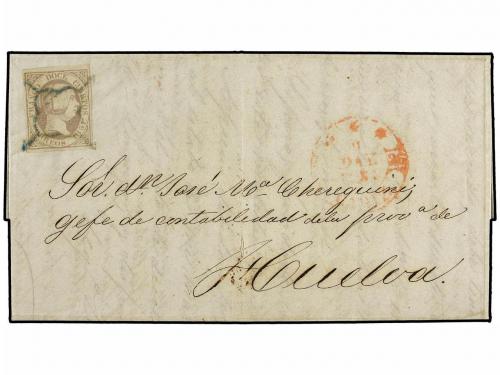 DOCE CUARTOS
Sor. dn. José Ma. Cherequini,
gefe de contabilidad de la prova. de
Huelva.